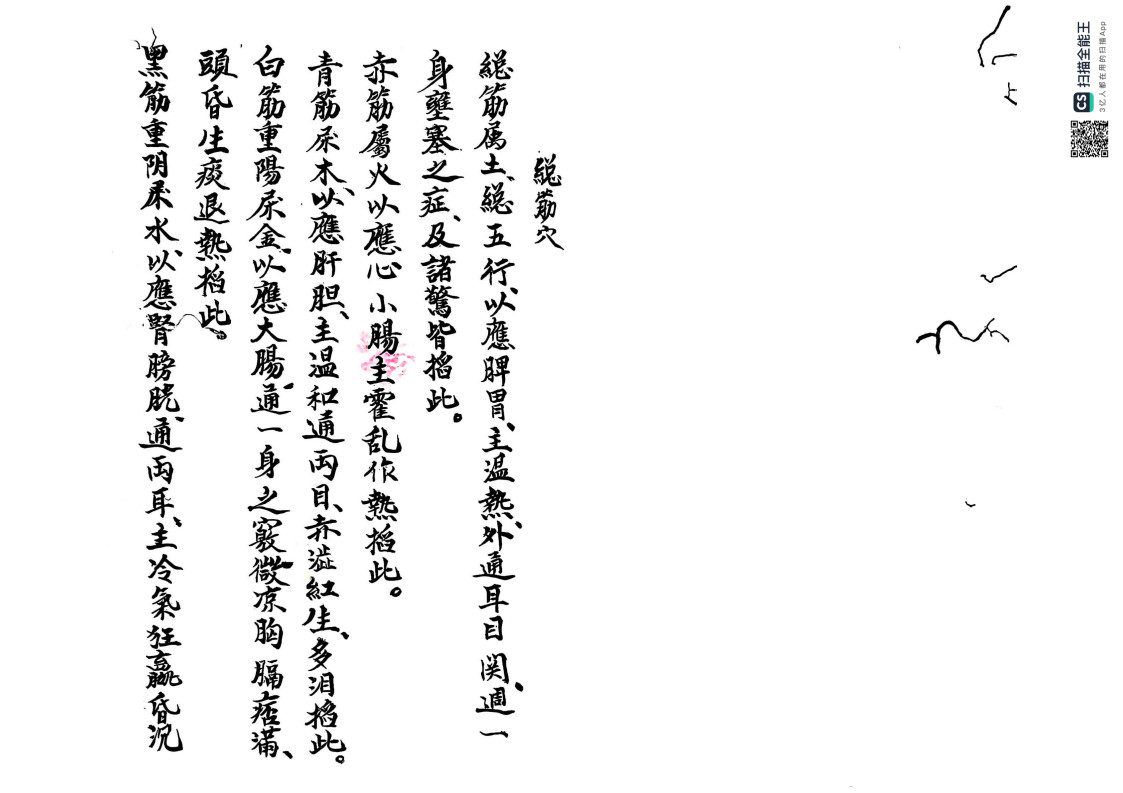 縂筋穴
縂筋属土、縂五行、以應脾胃、主温熱、外通耳目関、週一
身壅塞之症、及諸驚皆掐此。
赤筋屬火以應心小腸主霍乱作熱掐此。
青筋屎木、以應肝胆、主温和通両目、赤澁紅生、多泪掐此。
白筋重陽屎金、以應大腸、通一身之竅微凉胸膈痞滿、
頭昏生痰退熱掐此。
黑筋重阴屎水、以應腎膀胱、通両耳、主冷氣狂羸昏沉
CS 扫描全能王
3亿人都在用的扫描App